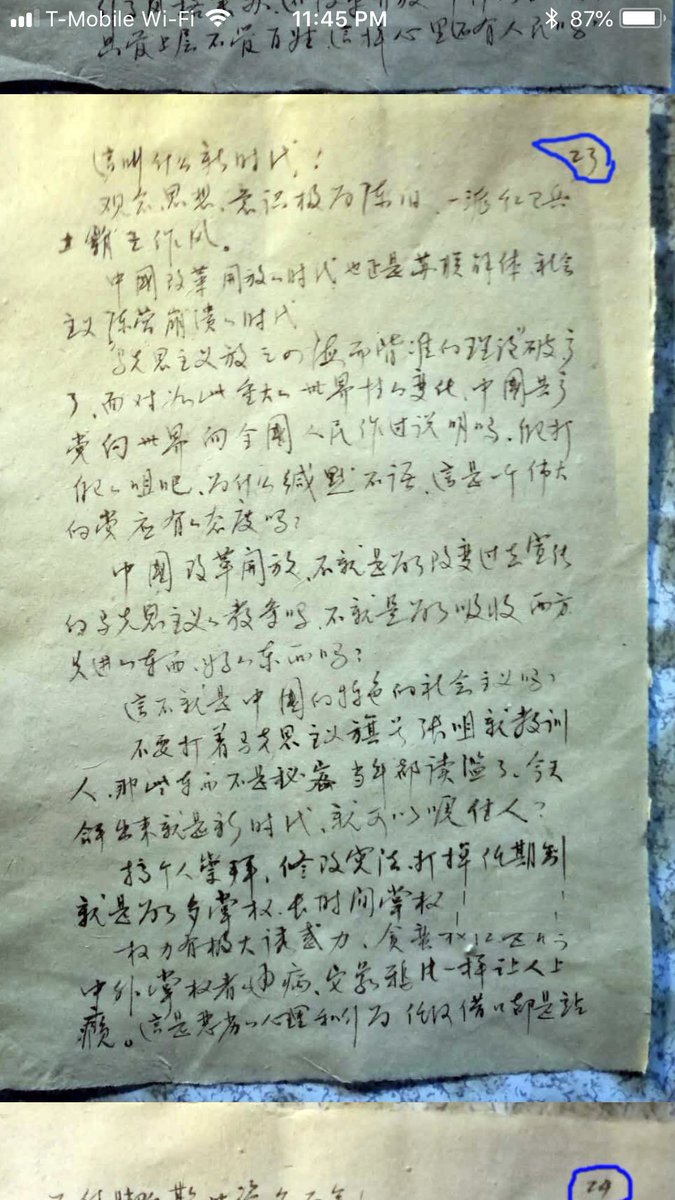 T-Mobile Wi-Fi 11:45 PM 87%
只管上层不管百姓 这样心里还有人民吗
23
這叫什么新时代！
观念思想、意识极为陈旧、一派红卫兵
土霸王作风。
中國改革開放的时代也正是苏联解体、社会
主义阵营崩溃的时代
马克思主义放之四海而皆准的理论破产
了，面对如此重大的世界性的变化、中国共产
党向世界向全國人民作过说明吗、
的嘴吧、为什么缄默不语、這是一个伟大
的党应有的态度吗？
中國改革開放、不就是为了改变过去宣传
的马克思主义的教条吗、不就是为了吸收西方
先进的东西、好的东西吗？
這不就是中國的特色的社会主义吗？
不要打着马克思主义旗号张咀就教训
人、那些东西不是秘密 当年都读滥了、今天
拿出来就是新时代、就可以唬住人？
搞个人崇拜、修改宪法、打掉任期制
就是为了多掌权、长时间掌权！
权力有极大诱惑力、贪恋权位是古今
中外掌权者通病、它象鸦片一样让人上
癮。這是患者的心理和行为 任何借口都是站
24